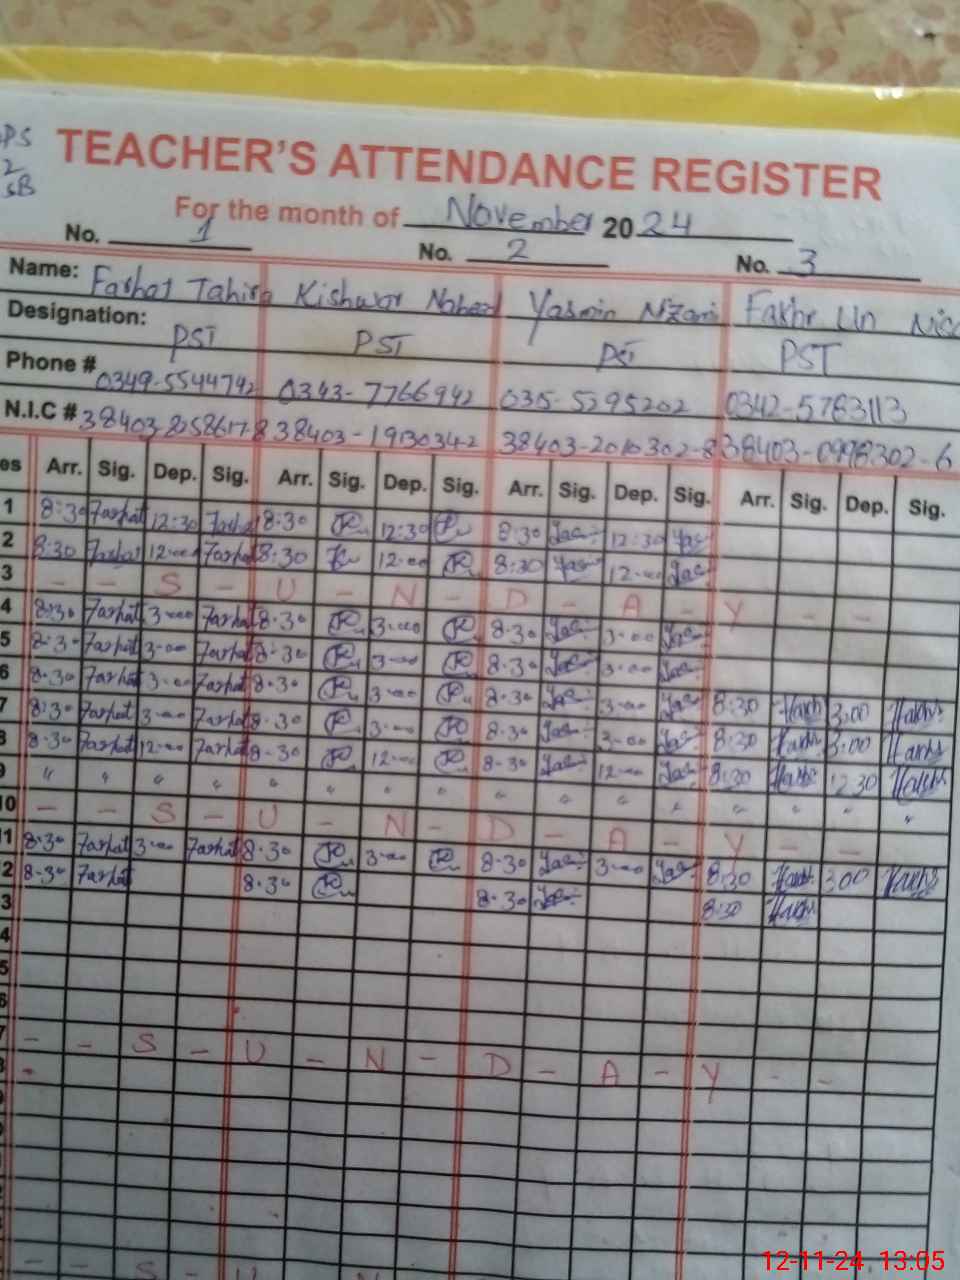 PS
2
SB
TEACHER'S ATTENDANCE REGISTER
For the month of November 2024
No. 1 No. 2 No. 3
Name: Farhat Tahira Kishwar Yasmin Nizami Fakhr Un
Designation: PST PST PST PST
Phone # 0349-5544742 0343-7766942 0315-5295202 0342-5783113
N.I.C # 38403-8258617-8 38403-1913034-2 38403-0998302-6
es Arr. Sig. Dep. Sig. Arr. Sig. Dep. Sig. Arr. Sig. Dep. Sig. Arr. Sig. Dep. Sig.
1 8:30 Farhat 12:30 Farhat 8:30 12:30 8:30 Yas 12:30 Yas
2 8:30 Farhat 12:00 Farhat 8:30 12:00 8:30 Yas 12:00 Yas
3 - - S - U - N - D - A - Y - -
4 8:30 Farhat 3:00 Farhat 8:30 3:00 8:30 Yas 3:00 Yas
5 8:30 Farhat 3:00 Farhat 8:30 3:00 8:30 Yas 3:00 Yas
6 8:30 Farhat 3:00 Farhat 8:30 3:00 8:30 Yas 3:00 Yas 8:30 3:00
7 8:30 Farhat 3:00 Farhat 8:30 3:00 8:30 Yas 3:00 Yas 8:30 3:00
8 8:30 Farhat 12:00 Farhat 8:30 12:00 8:30 Yas 12:00 Yas 8:30 12:30
9 " " " " " " " " " " " " " " " "
10 - - S - U - N - D - A - Y - - -
11 8:30 Farhat 3:00 Farhat 8:30 3:00 8:30 Yas 3:00 Yas 8:30 3:00
2 8:30 Farhat 8:30 8:30 Yas 8:30
3
4
5
6
7 - - S - U - N - D - A - Y - -
8
- - S - U - N
12-11-24 13:05